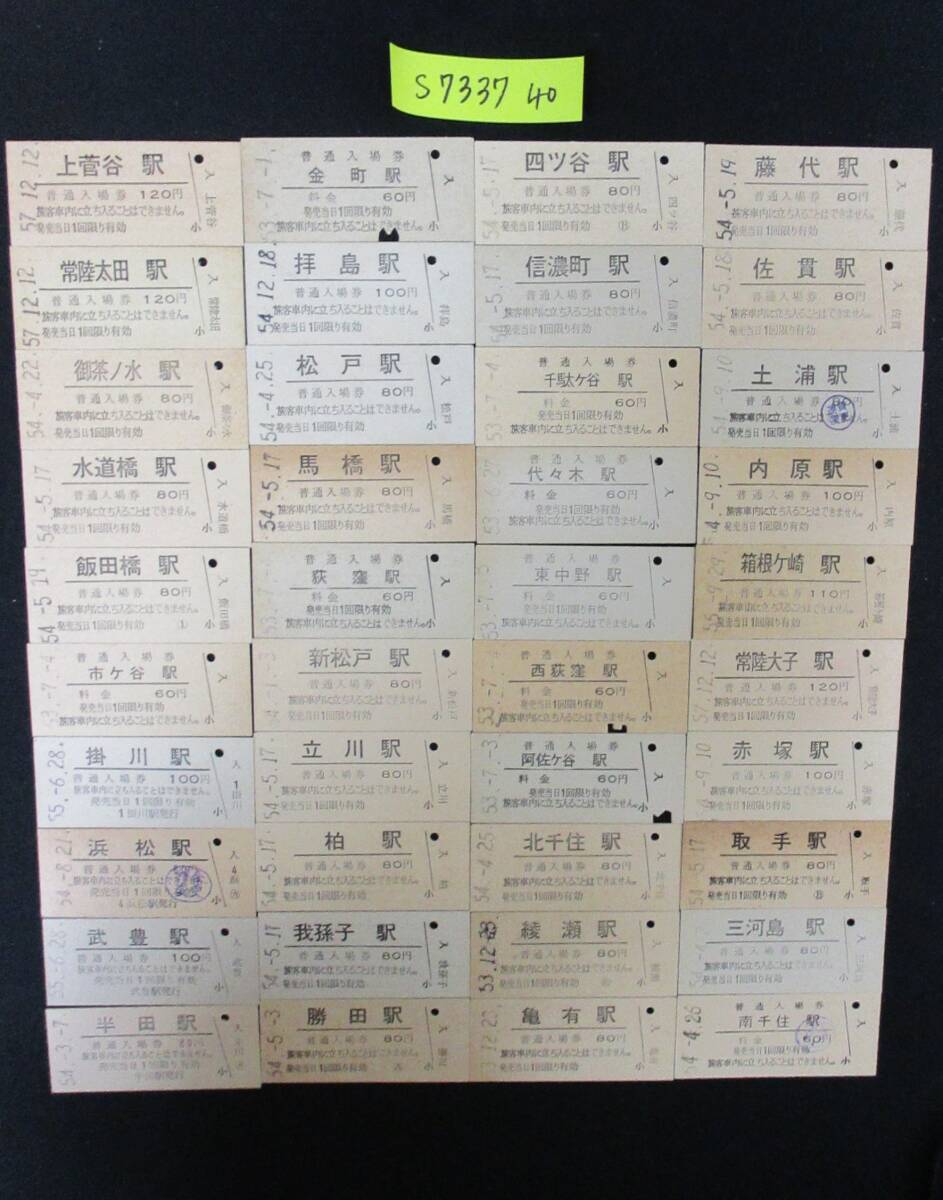 S7337 40
57.12.12
上菅谷 駅
普通入場券 120円
旅客車内に立ち入ることはできません。
発売当日1回限り有効
小
入
上菅谷
53.-7.-1
普通入場券
金町駅
料金 60円
発売当日1回限り有効
旅客車内に立ち入ることはできません。
小
入
54.-5.17
四ツ谷 駅
普通入場券 80円
旅客車内に立ち入ることはできません。
発売当日1回限り有効
小
入
四ツ谷
54.-5.19
藤代駅
普通入場券 80円
旅客車内に立ち入ることはできません。
発売当日1回限り有効
小
入
藤代
57.12.12
常陸太田 駅
普通入場券 120円
旅客車内に立ち入ることはできません。
発売当日1回限り有効
小
入
常陸太田
54.12.18
拝島駅
普通入場券 100円
旅客車内に立ち入ることはできません。
発売当日1回限り有効
小
入
拝島
54.-5.17
信濃町 駅
普通入場券 80円
旅客車内に立ち入ることはできません。
発売当日1回限り有効
小
入
信濃町
54.-5.18
佐貫駅
普通入場券 80円
旅客車内に立ち入ることはできません。
発売当日1回限り有効
小
入
佐貫
54.-4.22
御茶ノ水 駅
普通入場券 80円
旅客車内に立ち入ることはできません。
発売当日1回限り有効
小
入
御茶ノ水
54.-4.25
松戸駅
普通入場券 80円
旅客車内に立ち入ることはできません。
発売当日1回限り有効
小
入
松戸
53.-7.-4
普通入場券
千駄ケ谷 駅
料金 60円
発売当日1回限り有効
旅客車内に立ち入ることはできません。
小
入
54.-9.10
土浦駅
普通入場券
旅客車内に立ち入ることはできません。
発売当日1回限り有効
小
入
土浦
54.-5.17
水道橋 駅
普通入場券 80円
旅客車内に立ち入ることはできません。
発売当日1回限り有効
小
入
水道橋
54.-5.17
馬橋駅
普通入場券 80円
旅客車内に立ち入ることはできません。
発売当日1回限り有効
小
入
馬橋
普通入場券
代々木 駅
料金 60円
発売当日1回限り有効
旅客車内に立ち入ることはできません。
小
入
54.-9.10
内原駅
普通入場券 100円
旅客車内に立ち入ることはできません。
発売当日1回限り有効
小
入
内原
54.-5.19
飯田橋 駅
普通入場券 80円
旅客車内に立ち入ることはできません。
発売当日1回限り有効
小
入
飯田橋
普通入場券
荻窪駅
料金 60円
発売当日1回限り有効
旅客車内に立ち入ることはできません。
小
入
普通入場券
東中野 駅
料金 60円
発売当日1回限り有効
旅客車内に立ち入ることはできません。
小
入
箱根ケ崎 駅
普通入場券 110円
旅客車内に立ち入ることはできません。
発売当日1回限り有効
小
入
箱根ケ崎
53.-7.-4
普通入場券
市ケ谷 駅
料金 60円
発売当日1回限り有効
旅客車内に立ち入ることはできません。
小
入
新松戸 駅
普通入場券 80円
旅客車内に立ち入ることはできません。
発売当日1回限り有効
小
入
新松戸
普通入場券
西荻窪 駅
料金 60円
発売当日1回限り有効
旅客車内に立ち入ることはできません。
小
入
57.12.12
常陸大子 駅
普通入場券 120円
旅客車内に立ち入ることはできません。
発売当日1回限り有効
小
入
常陸大子
55.-6.28
掛川駅
普通入場券 100円
旅客車内に立ち入ることはできません。
発売当日1回限り有効
1掛川駅発行
小
入
1掛川
54.-5.17
立川駅
普通入場券 80円
旅客車内に立ち入ることはできません。
発売当日1回限り有効
小
入
立川
53.-7.-3
普通入場券
阿佐ケ谷 駅
料金 60円
発売当日1回限り有効
旅客車内に立ち入ることはできません。
入
54.-9.10
赤塚駅
普通入場券 100円
旅客車内に立ち入ることはできません。
発売当日1回限り有効
小
入
赤塚
54.-8.21
浜松駅
普通入場券
発売当日1回限り有効
4浜松駅発行
入
54.-5.17
柏駅
普通入場券 80円
旅客車内に立ち入ることはできません。
発売当日1回限り有効
小
入
柏
54.-4.25
北千住 駅
普通入場券 80円
旅客車内に立ち入ることはできません。
発売当日1回限り有効
小
入
北千住
54.-5.17
取手駅
普通入場券 80円
旅客車内に立ち入ることはできません。
発売当日1回限り有効
小
入
取手
55.-6.28
武豊駅
普通入場券 100円
旅客車内に立ち入ることはできません。
発売当日1回限り有効
武豊駅発行
小
入
武豊
54.-5.17
我孫子 駅
普通入場券 80円
旅客車内に立ち入ることはできません。
発売当日1回限り有効
小
入
我孫子
53.12.23
綾瀬駅
普通入場券 80円
旅客車内に立ち入ることはできません。
発売当日1回限り有効
小
入
綾瀬
三河島 駅
普通入場券 80円
旅客車内に立ち入ることはできません。
発売当日1回限り有効
小
入
三河島
54.-3.-7
半田駅
普通入場券
旅客車内に立ち入ることはできません。
発売当日1回限り有効
半田駅発行
小
入
勝田駅
普通入場券 80円
旅客車内に立ち入ることはできません。
発売当日1回限り有効
小
入
勝田
亀有駅
普通入場券 80円
旅客車内に立ち入ることはできません。
発売当日1回限り有効
小
入
亀有
54.-4.26
普通入場券
南千住 駅
料金 60円
発売当日1回限り有効
旅客車内に立ち入ることはできません。
小
入